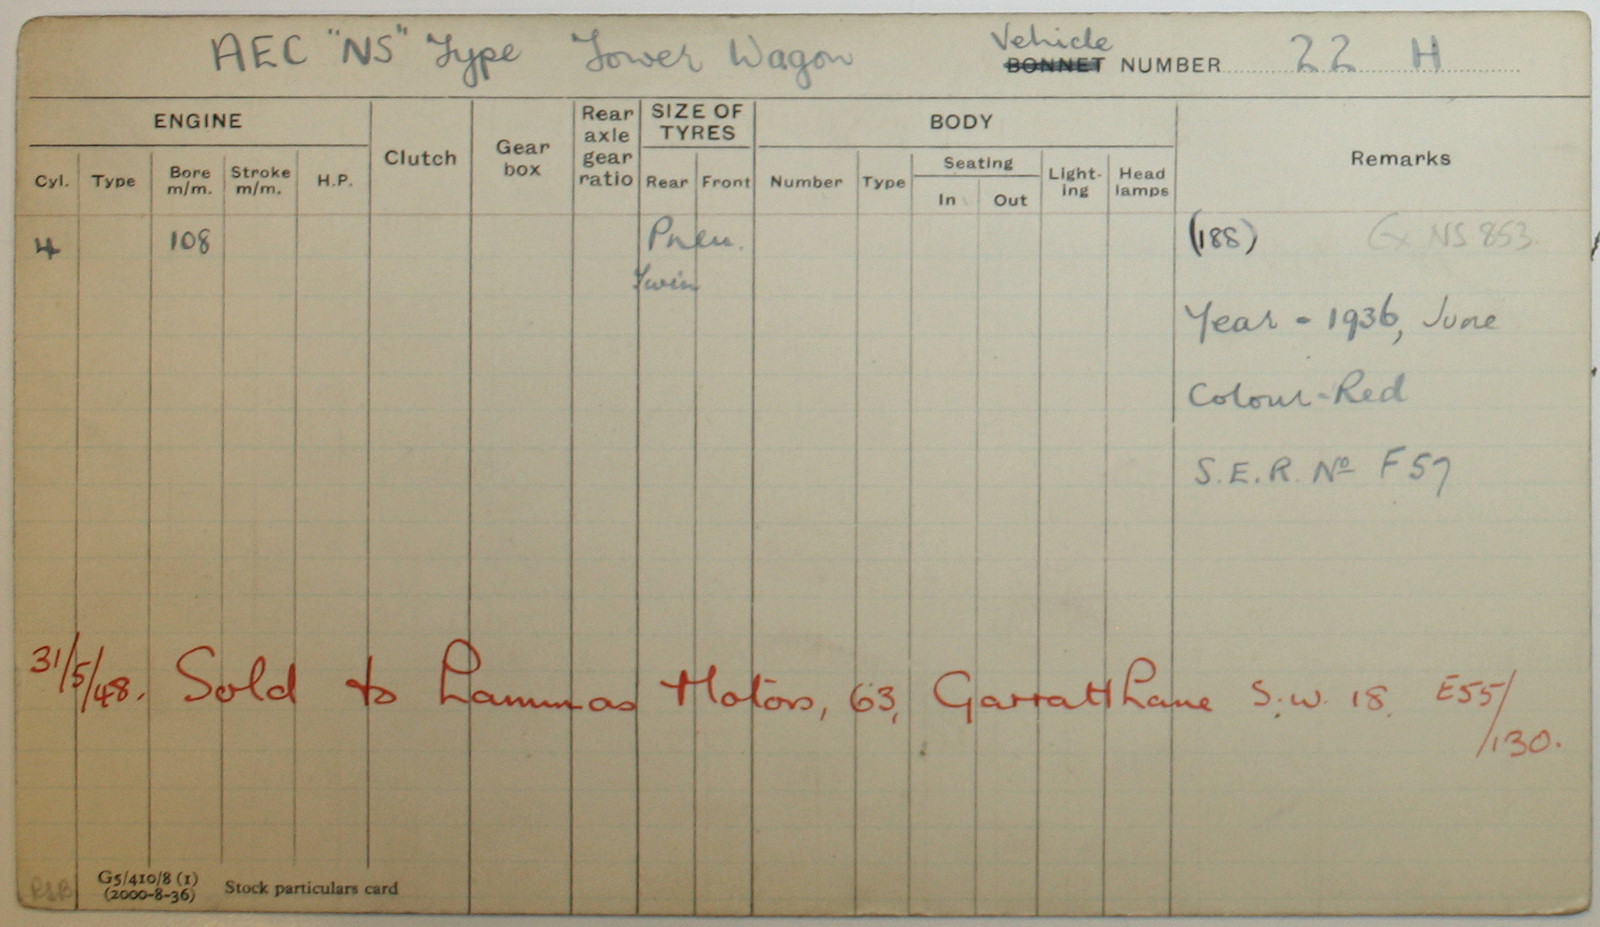 AEC "NS" Type Tower Wagon
Vehicle
BONNET NUMBER 22 H
ENGINE
Cyl.
Type
Bore
m/m.
Stroke
m/m.
H.P.
Clutch
Gear
box
Rear
axle
gear
ratio
SIZE OF
TYRES
Rear
Front
BODY
Number
Type
Seating
In
Out
Light-
ing
Head
lamps
Remarks
4
108
Pneu.
Twin
(188) Ex NS 853.
Year - 1936, June
Colour - Red
S.E.R. No F57
31/5/48. Sold to Lammas Motors, 63, Garratt Lane S.W. 18. E55/
/130.
G5/410/8 (1)
(2000-8-36)
Stock particulars card